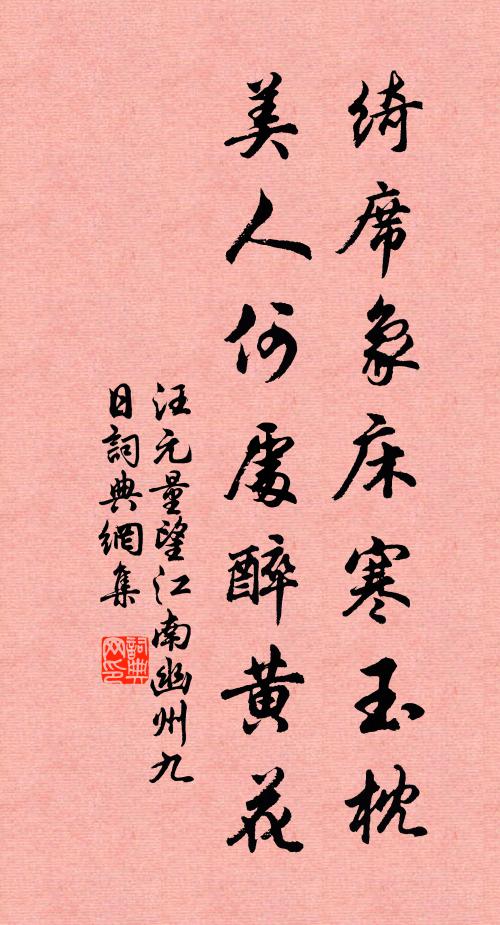 綺席象床寒玉枕
美人何處醉黃花
汪元量望江南幽州九
日詞典網集
詞典
网印